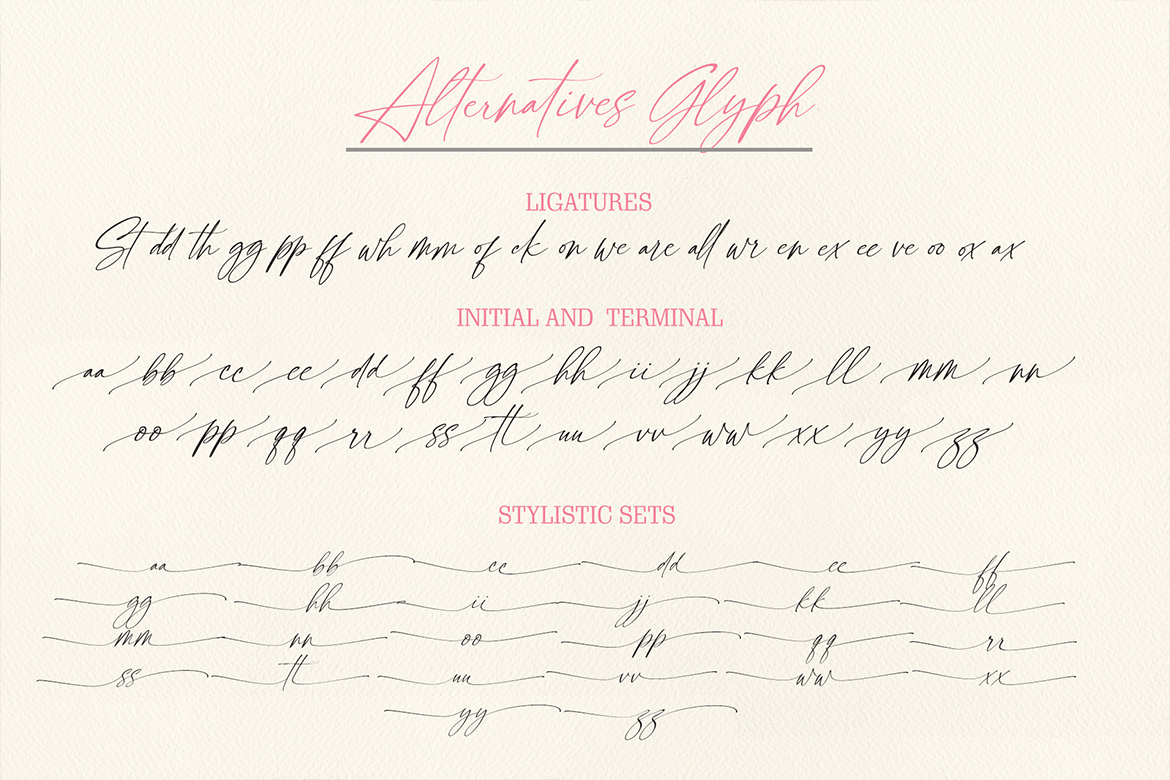 Alternatives Glyph
LIGATURES
St dd th gg pp ff wh mm of ck on we are all wr en ex ee ve oo ox ax
INITIAL AND TERMINAL
aa bb cc ee dd ff gg hh ii jj kk ll mm nn
oo pp qq rr ss tt uu vv ww xx yy zz
STYLISTIC SETS
aa bb cc dd ee ff
gg hh ii jj kk ll
mm nn oo pp qq rr
ss tt uu vv ww xx
yy zz